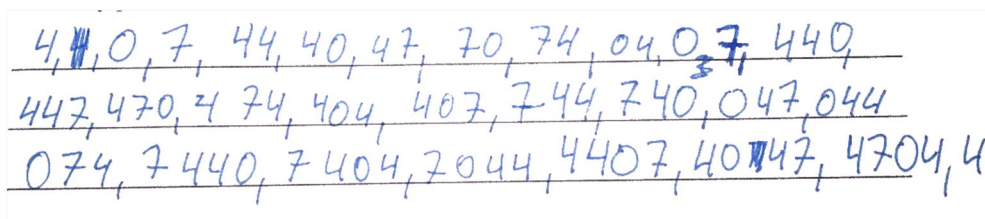 4, 0, 7, 44, 40, 47, 70, 74, 04, 07, 440,
447, 470, 474, 404, 407, 744, 740, 047, 044
074, 7440, 7404, 7044, 4407, 4047, 4704, 4